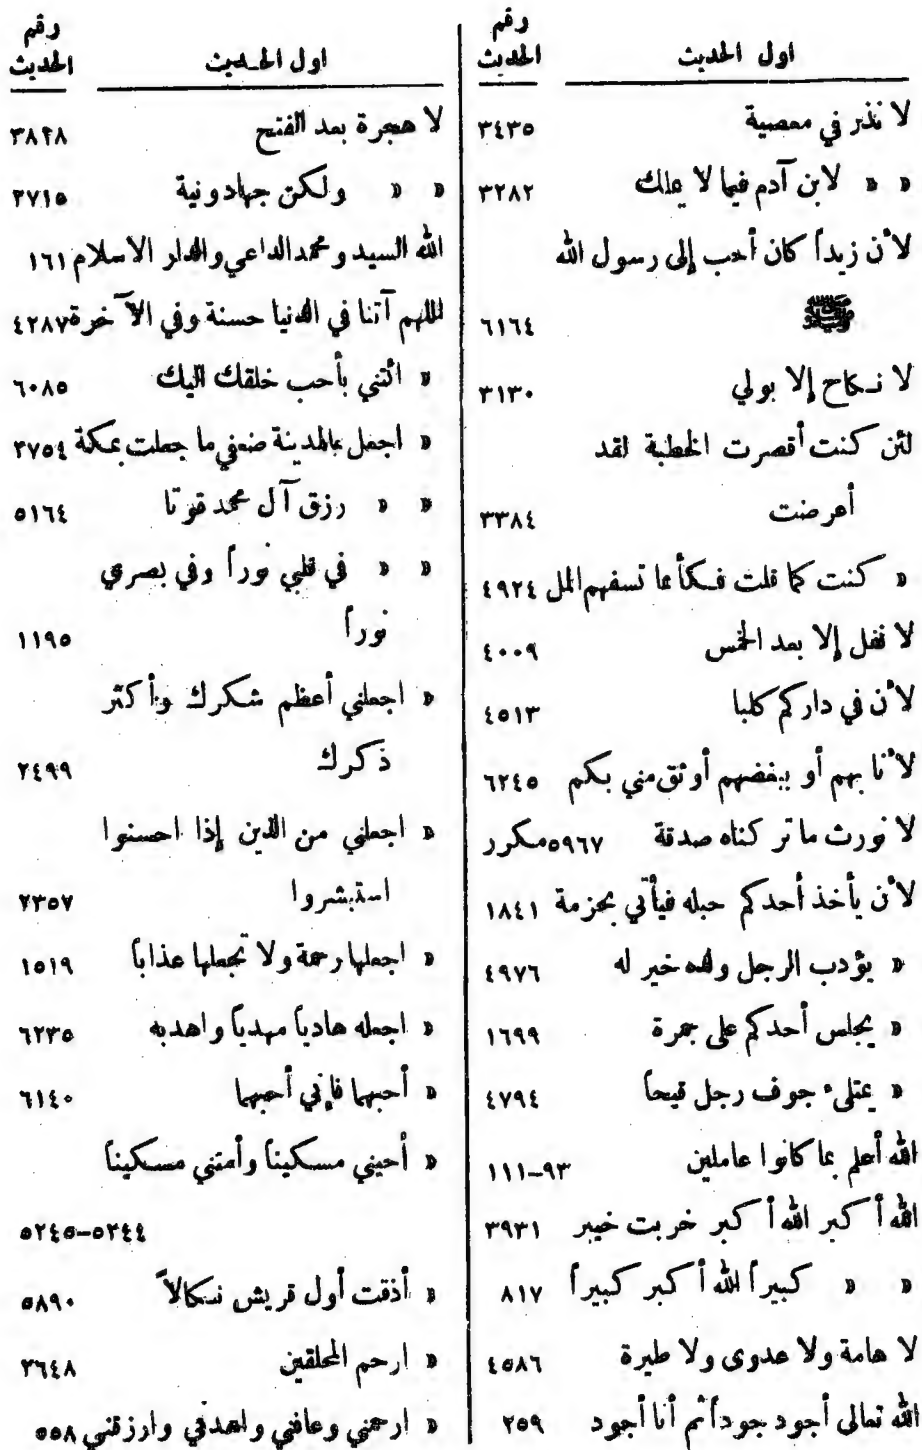 اول الحديث	رقم الحديث
لا نذر في معصية	٣٤٣٥
« « لابن آدم فيما لا يملك	٣٢٨٢
لأن زيداً كان أحب إلى رسول الله
ﷺ	٦١٦٤
لا نكاح إلا بولي	٣١٣٠
لئن كنت أقصرت الخطبة لقد
أعرضت	٣٣٨٤
« كنت كما قلت فكأنما تسفهم المل	٤٩٢٤
لا نفل إلا بعد الخمس	٤٠٠٩
لأن في داركم كلبا	٤٥١٣
لأنا بهم أو ببعضهم أوثق مني بكم	٦٢٤٥
لا نورث ما تركناه صدقة	٥٩٦٧ مكرر
لأن يأخذ أحدكم حبله فيأتي بحزمة	١٨٤١
« يؤدب الرجل ولده خير له	٤٩٧٦
« يجلس أحدكم على جمرة	١٦٩٩
« يمتلىء جوف رجل قيحاً	٤٧٩٤
الله أعلم بما كانوا عاملين	٩٣-١١١
الله أكبر الله أكبر خربت خيبر	٣٩٣١
« « كبيراً الله أكبر كبيراً	٨١٧
لا هامة ولا عدوى ولا طيرة	٤٥٨٦
الله تعالى أجود جوداً ثم أنا أجود	٢٥٩
اول الحديث	رقم الحديث
لا هجرة بعد الفتح	٣٨٢٨
« « ولكن جهاد ونية	٢٧١٥
الله السيد ومحمد الداعي والدار الاسلام	١٦١
اللهم آتنا في الدنيا حسنة وفي الآخرة	٤٢٨٧
« ائتني بأحب خلقك اليك	٦٠٨٥
« اجعل بالمدينة ضعفي ما جعلت بمكة	٢٧٥٤
« « رزق آل محمد قوتا	٥١٦٤
« « في قلبي نوراً وفي بصري
نوراً	١١٩٥
« اجعلني أعظم شكرك وأكثر
ذكرك	٢٤٩٩
« اجعلني من الذين إذا احسنوا
استبشروا	٢٣٥٧
« اجعلها رحمة ولا تجعلها عذاباً	١٥١٩
« اجعله هادياً مهدياً واهد به	٦٢٣٥
« أحبهما فإني أحبهما	٦١٤٠
« أحيني مسكيناً وأمتني مسكيناً
٥٢٤٤-٥٢٤٥
« أذقت أول قريش نكالاً	٥٨٩٠
« ارحم المحلقين	٢٦٤٨
« ارحمني وعافني واهدني وارزقني	٥٥٨